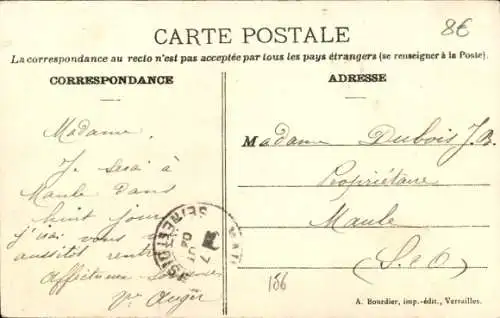 8€
CARTE POSTALE
La correspondance au recto n'est pas acceptée par tous les pays étrangers (se renseigner à la Poste).
CORRESPONDANCE
ADRESSE
Madame,
Je serai à
Maule dans
huit jours
j'irai vous
aussitôt
Affectueux
Madame Dubois J.B.
Propriétaire
Maule
(S & O)
SEINE-ET-OISE
186
A. Bourdier, imp.-édit., Versailles.